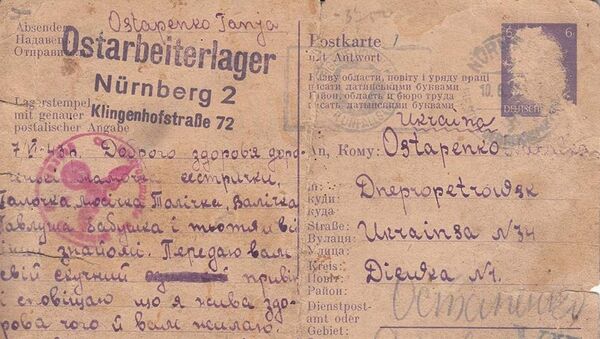 Absender:
Надавец
Отправи
Ostapenko Tanja
Ostarbeiterlager
Nürnberg 2
Klingenhofstraße 72
Lagerstempel
mit genauer
postalischer Angabe
7 VI-43р. Доброго здоровя доро
мамочка сестрички,
Галочка Люсічка Толічка, Валічка
Павлуша бабушка і тьотя и всі
інші знайомі. Передаю вам
свій скучний приві
і сповіщаю що я жива здо
рова чого й вам желаю.
Postkarte
mit Antwort
Назву области, повіту і уряду праці
писати латинськими буквами
Район, область и бюро труда
писать латинскими буквами
6
6
NÜRN
10.6
Ukraina
An, Кому: Ostapenko
in:
куди:
куда
Dnepropetrowsk
Straße:
Вулаця:
Улица:
Ukrainsa N34
Kreis:
Повіт:
Район:
Dieuka N1.
Dienstpost-
amt oder
Gebiet:
Остапенко